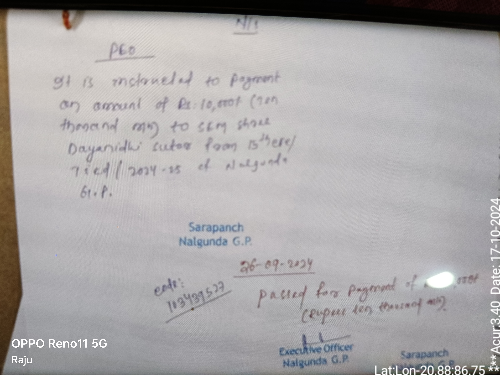 N/S
PEO
It is instructed to payment
an amount of Rs. 10,000/- (Ten
thousand only) to
Dayanidhi Sutar from 15th CFC/
Tied / 2024-25 of Nalgunda
G.P.
Sarapanch
Nalgunda G.P.
26-09-2024
Passed for payment of
(Rupees ten thousand only)
Executive Officer
Nalgunda G.P.
Sarapanch
Nalgunda G.P.
OPPO Reno11 5G
Raju
Lat:Lon-20.88:86.75
*** Acur 3.40 Date: 17-10-2024